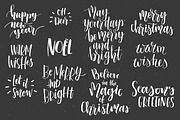 happy
new
year
Oh
Deer
May
your days
be merry
and bright
merry
christmas
warm
wishes
NOEL
warm
wishes
Be Merry
and
Bright
Believe
in the
Magic of
Christmas
let it
snow
Season's
Greetings